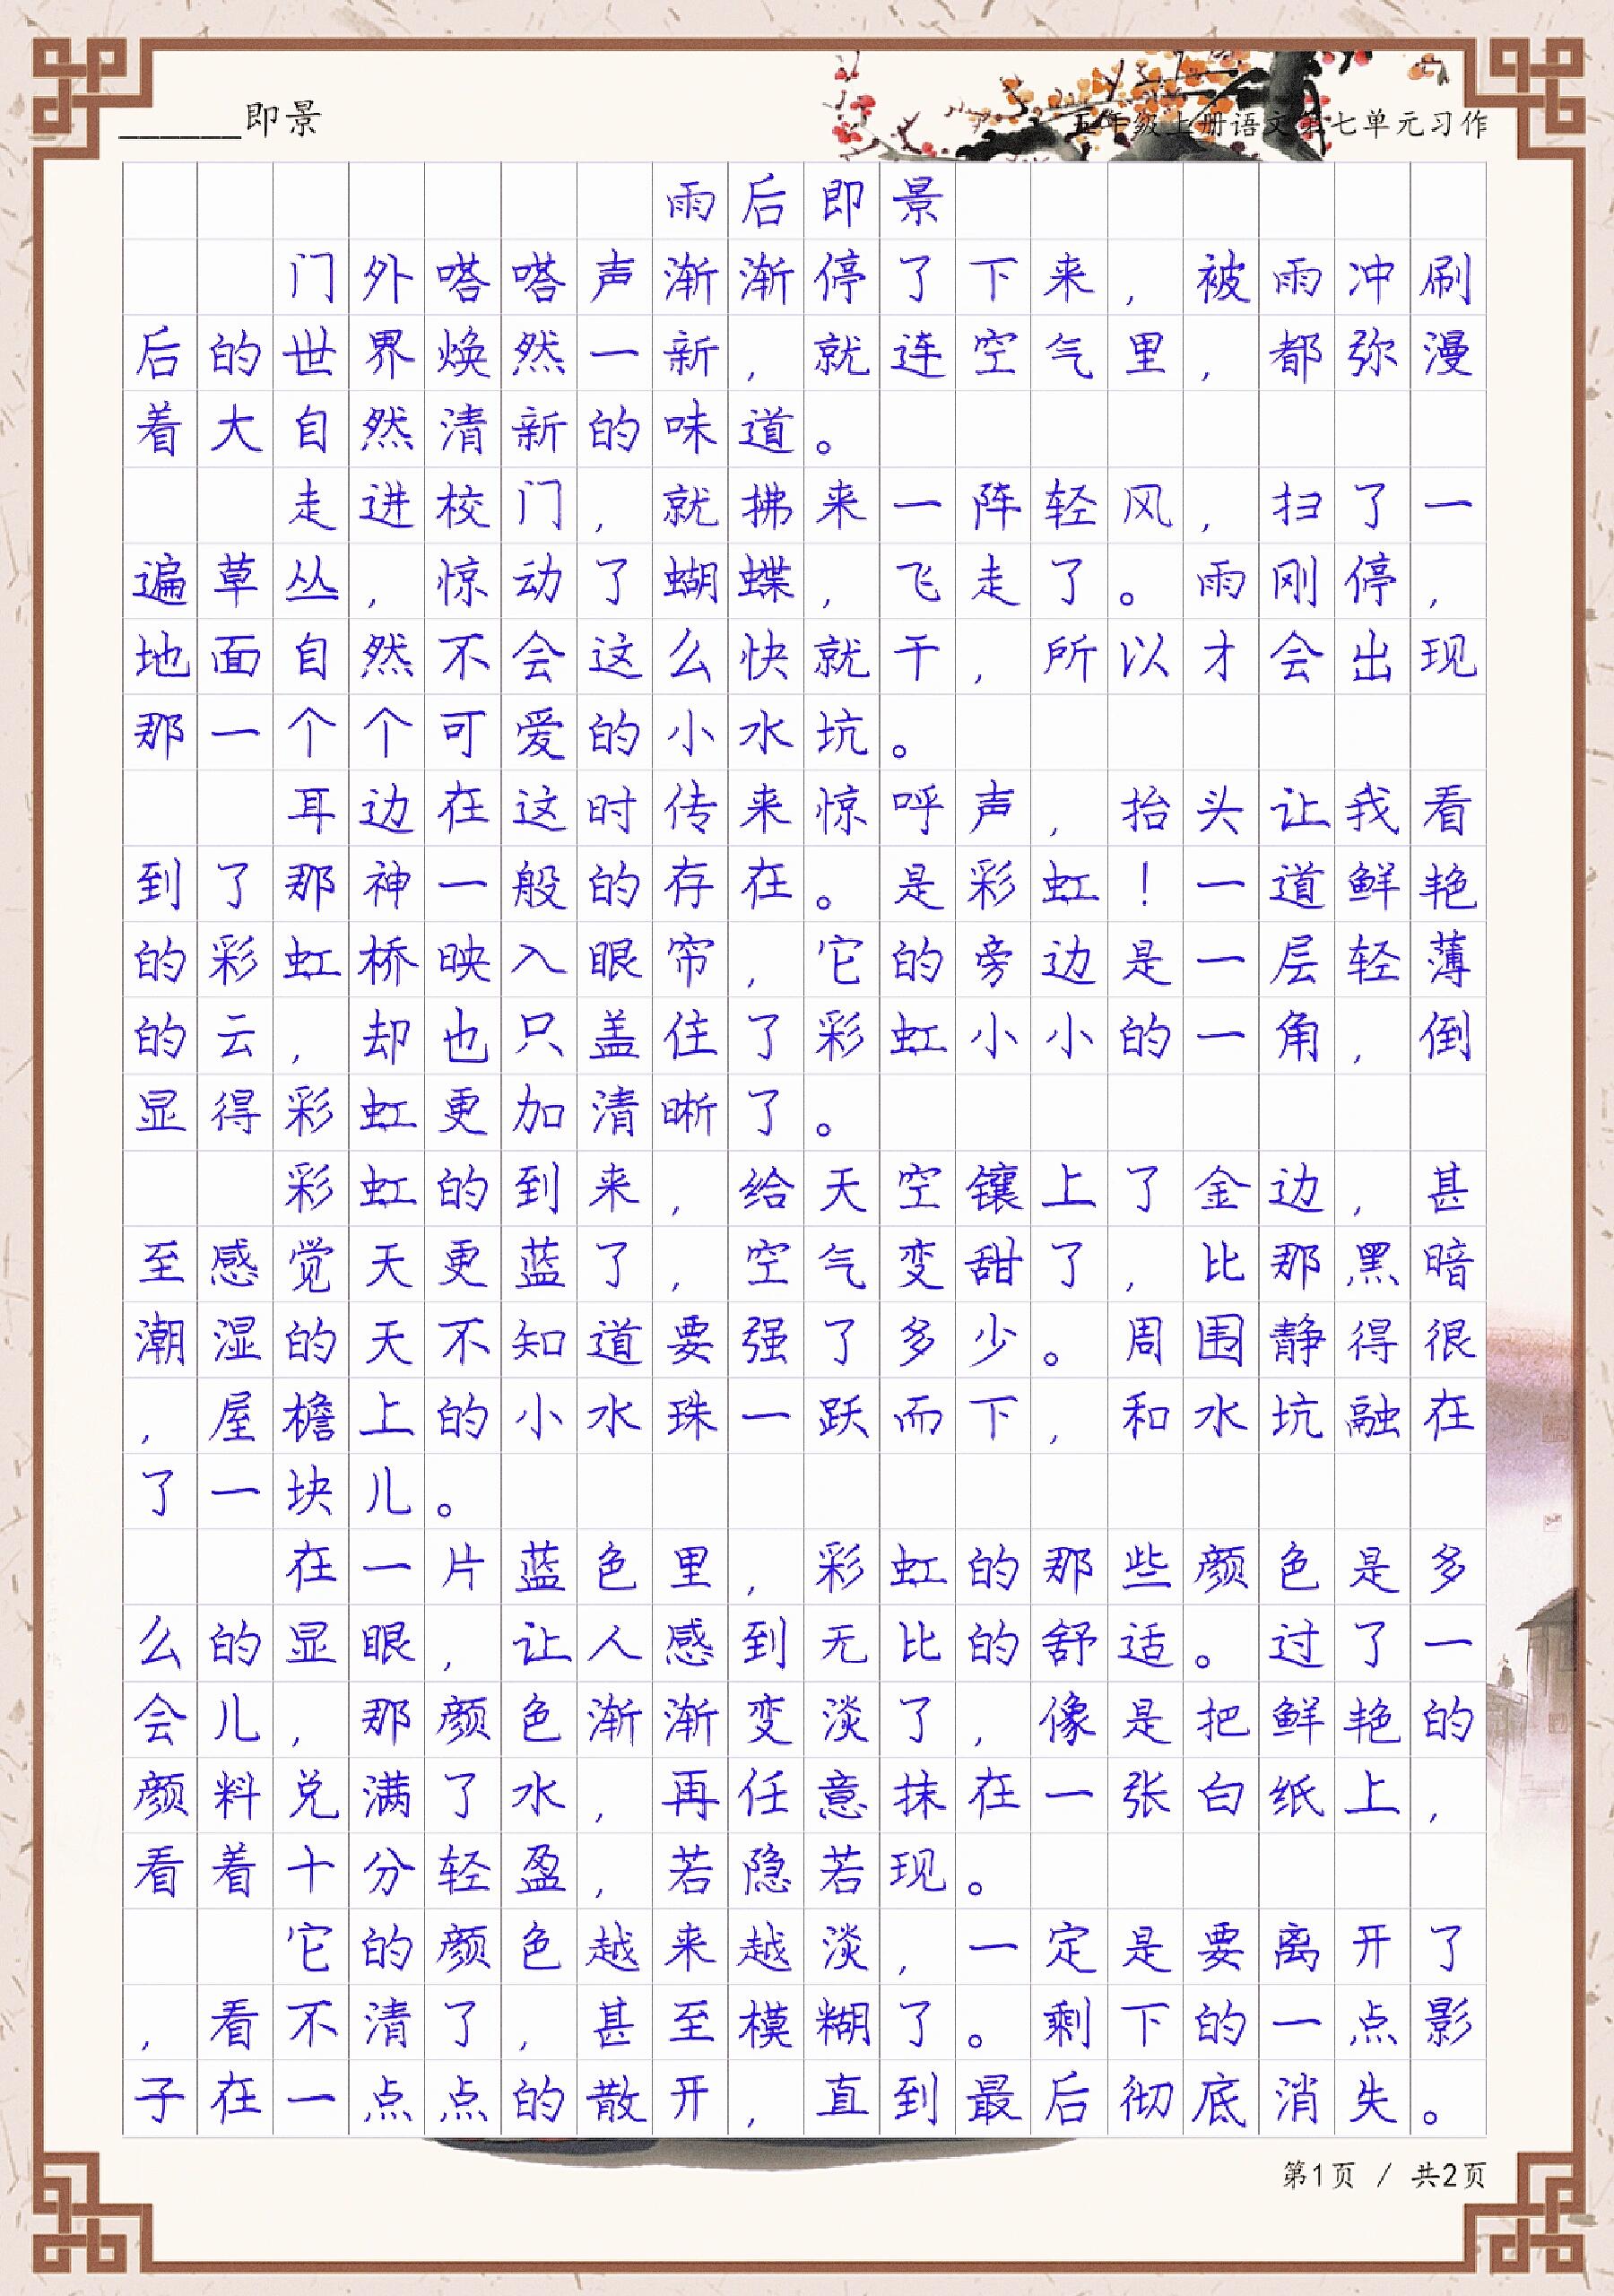 ______即景
五年级上册语文第七单元习作
雨后即景
门外嗒嗒声渐渐停了下来，被雨冲刷
后的世界焕然一新，就连空气里，都弥漫
着大自然清新的味道。
走进校门，就拂来一阵轻风，扫了一
遍草丛，惊动了蝴蝶，飞走了。雨刚停，
地面自然不会这么快就干，所以才会出现
那一个个可爱的小水坑。
耳边在这时传来惊呼声，抬头让我看
到了那神一般的存在。是彩虹！一道鲜艳
的彩虹桥映入眼帘，它的旁边是一层轻薄
的云，却也只盖住了彩虹小小的一角，倒
显得彩虹更加清晰了。
彩虹的到来，给天空镶上了金边，甚
至感觉天更蓝了，空气变甜了，比那黑暗
潮湿的天不知道要强了多少。周围静得很
，屋檐上的小水珠一跃而下，和水坑融在
了一块儿。
在一片蓝色里，彩虹的那些颜色是多
么的显眼，让人感到无比的舒适。过了一
会儿，那颜色渐渐变淡了，像是把鲜艳的
颜料兑满了水，再任意抹在一张白纸上，
看着十分轻盈，若隐若现。
它的颜色越来越淡，一定是要离开了
，看不清了，甚至模糊了。剩下的一点影
子在一点点的散开，直到最后彻底消失。
第1页 / 共2页